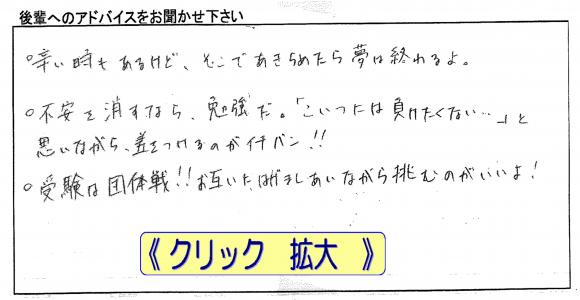 後輩へのアドバイスをお聞かせ下さい
○辛い時もあるけど、そこであきらめたら夢は終わるよ。
○不安を消すなら、勉強だ。「こいつには負けたくない…」と
思いながら、差をつけるのがイチバン!!
○受験は団体戦!!お互いにはげましあいながら挑むのがいいよ!
《クリック 拡大 》